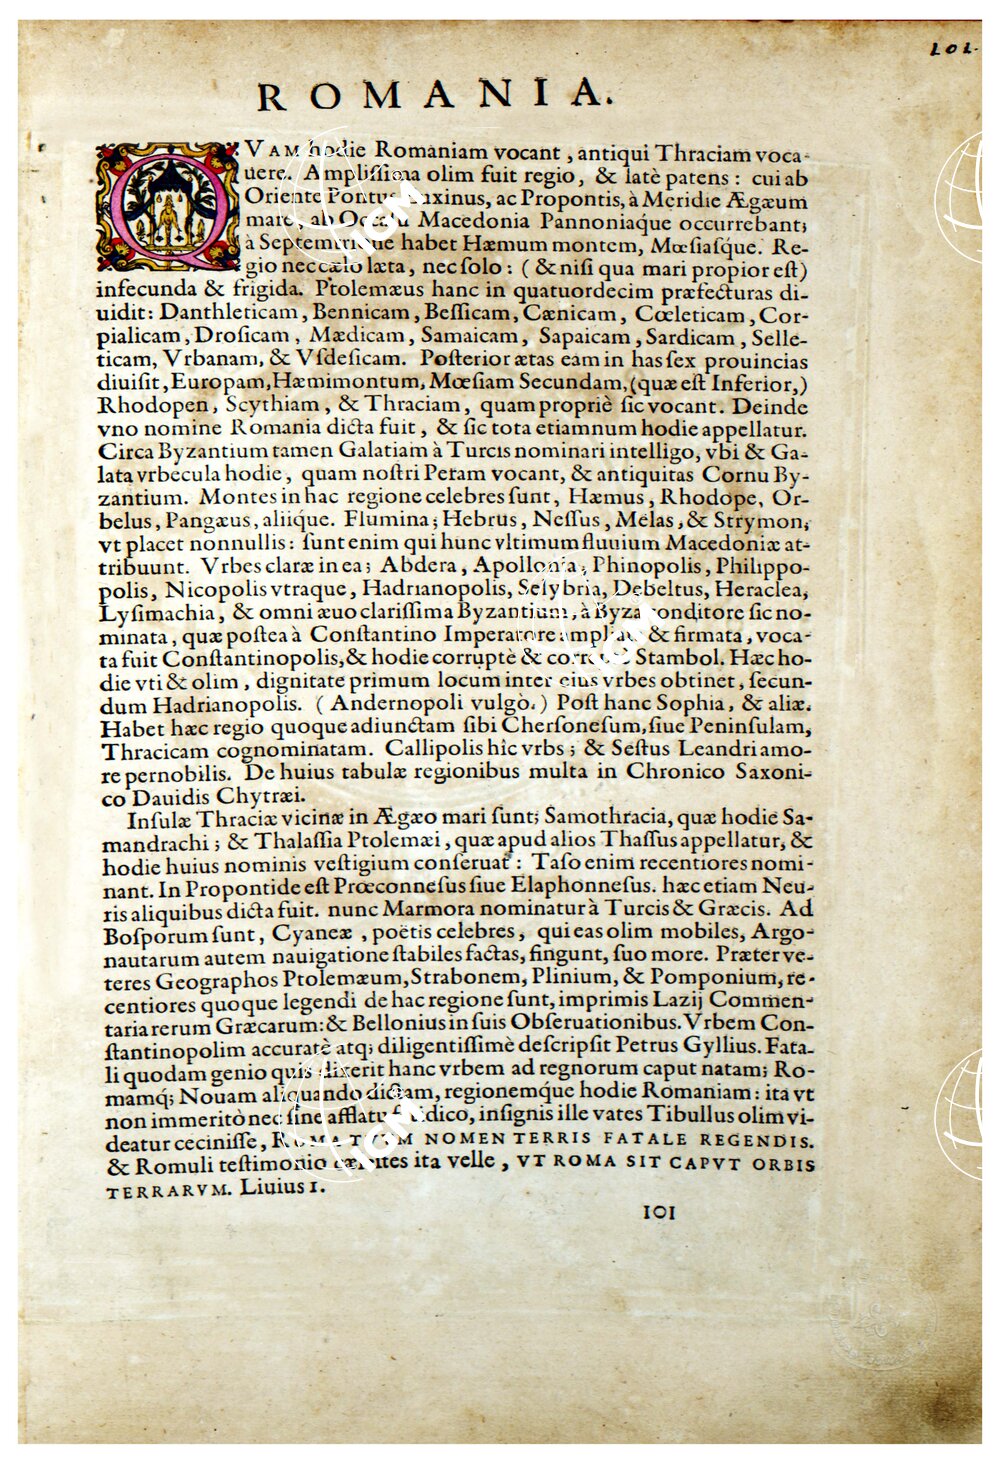 101.
ROMANIA.
QVAM hodie Romaniam vocant, antiqui Thraciam voca-
uere. Ampliſſima olim fuit regio, & latè patens: cui ab
Oriente Pontus Euxinus, ac Propontis, à Meridie Ægæum
mare, ab Occaſu Macedonia Pannoniaq́ue occurrebant;
à Septemtrione habet Hæmum montem, Mœſiaſq́ue. Re-
gio nec cælo læta, nec ſolo: (& niſi qua mari propior eſt)
infecunda & frigida. Ptolemæus hanc in quatuordecim præfecturas di-
uidit: Danthleticam, Bennicam, Beſſicam, Cænicam, Cœleticam, Cor-
pialicam, Droſicam, Mædicam, Samaicam, Sapaicam, Sardicam, Selle-
ticam, Vrbanam, & Vſdeſicam. Poſterior ætas eam in has ſex prouincias
diuiſit, Europam, Hæmimontum, Mœſiam Secundam, (quæ eſt Inferior,)
Rhodopen, Scythiam, & Thraciam, quam propriè ſic vocant. Deinde
vno nomine Romania dicta fuit, & ſic tota etiamnum hodie appellatur.
Circa Byzantium tamen Galatiam à Turcis nominari intelligo, vbi & Ga-
lata vrbecula hodie, quam noſtri Peram vocant, & antiquitas Cornu By-
zantium. Montes in hac regione celebres ſunt, Hæmus, Rhodope, Or-
belus, Pangæus, aliiq́ue. Flumina; Hebrus, Neſſus, Melas, & Strymon,
vt placet nonnullis: ſunt enim qui hunc vltimum fluuium Macedoniæ at-
tribuunt. Vrbes claræ in ea; Abdera, Apollonia, Phinopolis, Philippo-
polis, Nicopolis vtraque, Hadrianopolis, Selybria, Debeltus, Heraclea,
Lyſimachia, & omni æuo clariſſima Byzantium, à Byza conditore ſic no-
minata, quæ poſtea à Conſtantino Imperatore ampliata & firmata, voca-
ta fuit Conſtantinopolis, & hodie corruptè & correptè Stambol. Hæc ho-
die vti & olim, dignitate primum locum inter eius vrbes obtinet, ſecun-
dum Hadrianopolis. (Andernopoli vulgò.) Poſt hanc Sophia, & aliæ.
Habet hæc regio quoque adiunctam ſibi Cherſoneſum, ſiue Peninſulam,
Thracicam cognominatam. Callipolis hîc vrbs; & Seſtus Leandri amo-
re pernobilis. De huius tabulæ regionibus multa in Chronico Saxoni-
co Dauidis Chytræi.
Inſulæ Thraciæ vicinæ in Ægæo mari ſunt; Samothracia, quæ hodie Sa-
mandrachi; & Thalaſſia Ptolemæi, quæ apud alios Thaſſus appellatur, &
hodie huius nominis veſtigium conſeruat: Taſo enim recentiores nomi-
nant. In Propontide eſt Prœconneſus ſiue Elaphonneſus. hæc etiam Neu-
ris aliquibus dicta fuit. nunc Marmora nominatur à Turcis & Græcis. Ad
Boſporum ſunt, Cyaneæ, poëtis celebres, qui eas olim mobiles, Argo-
nautarum autem nauigatione ſtabiles factas, fingunt, ſuo more. Præter ve-
teres Geographos Ptolemæum, Strabonem, Plinium, & Pomponium, re-
centiores quoque legendi de hac regione ſunt, imprimis Lazij Commen-
taria rerum Græcarum: & Bellonius in ſuis Obſeruationibus. Vrbem Con-
ſtantinopolim accuratè atq; diligentiſſimè deſcripſit Petrus Gyllius. Fata-
li quodam genio quis dixerit hanc vrbem ad regnorum caput natam; Ro-
mamq́; Nouam aliquando dictam, regionemq́ue hodie Romaniam: ita vt
non immeritò nec ſine afflatu fatidico, inſignis ille vates Tibullus olim vi-
deatur ceciniſſe, ROMA TVVM NOMEN TERRIS FATALE REGENDIS.
& Romuli teſtimonio cælites ita velle, VT ROMA SIT CAPVT ORBIS
TERRARVM. Liuius 1.
101